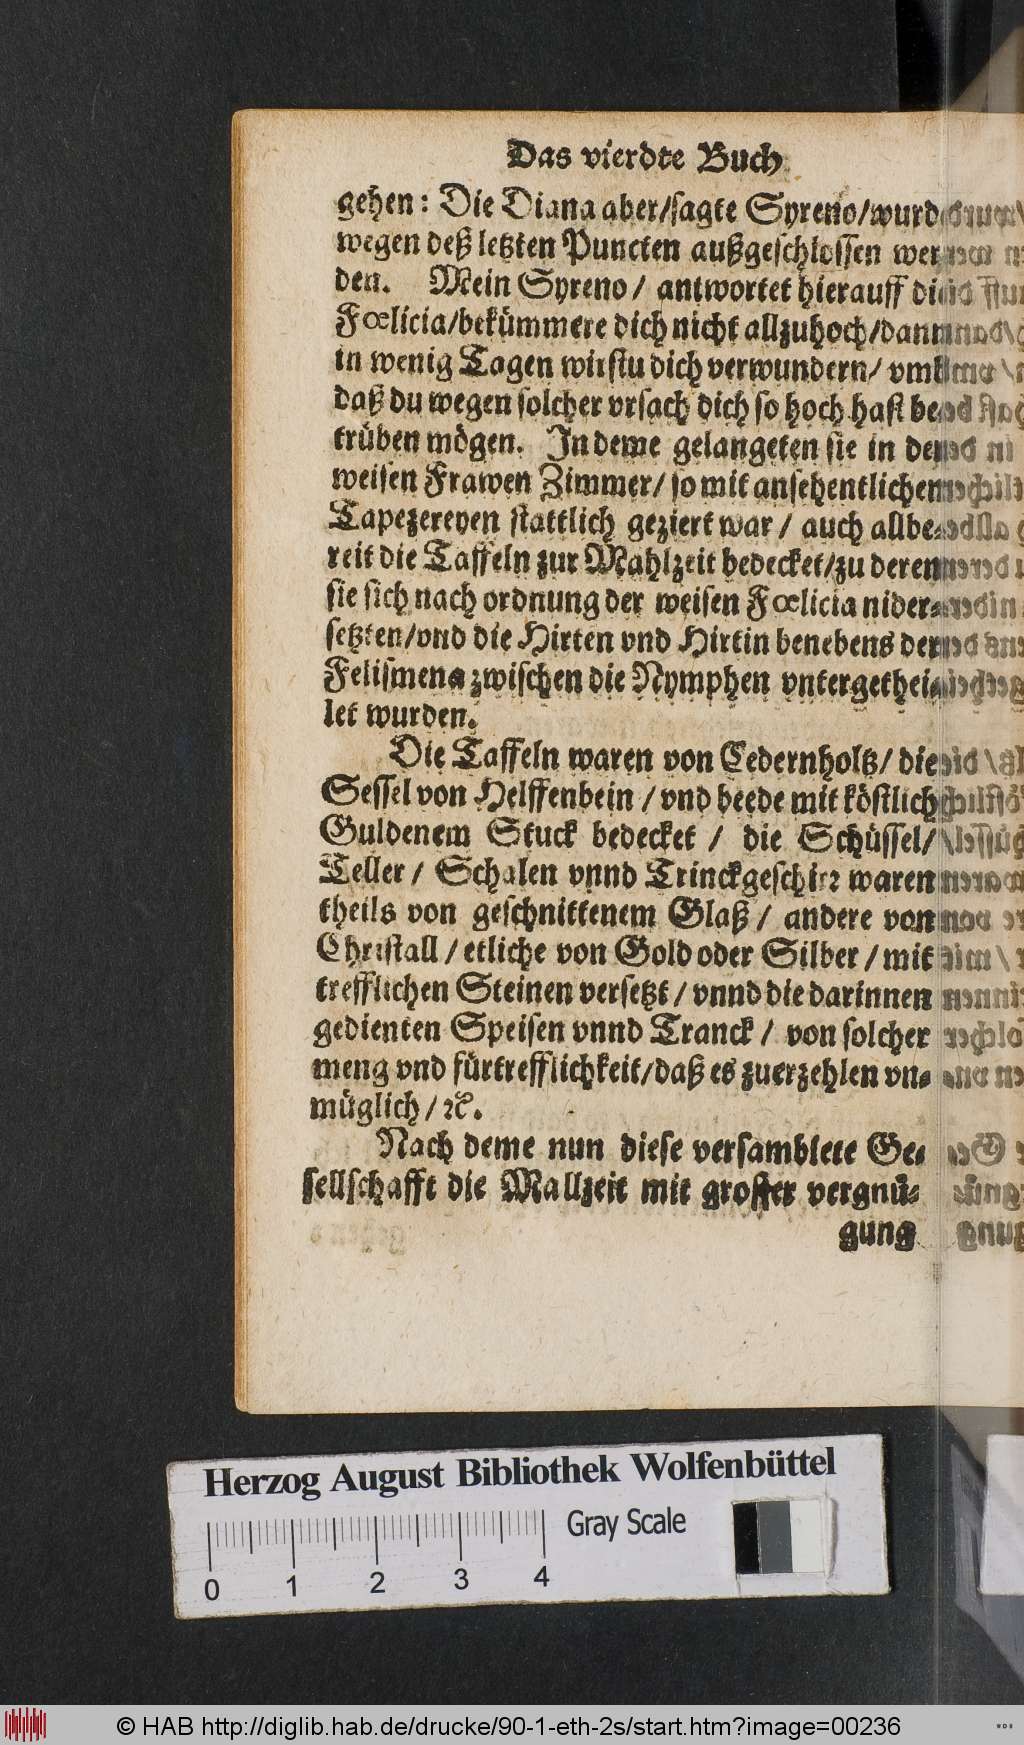 Das vierdte Buch
gehen: Die Diana aber/sagte Syreno/wurd
wegen deß letzten Puncten außgeschlossen wer
den. Mein Syreno / antwortet hierauff die
Fœlicia/bekümmere dich nicht allzuhoch/dann
in wenig Tagen wirstu dich verwundern/ vmb
daß du wegen solcher vrsach dich so hoch hast be
trüben mögen. In deme gelangeten sie in der
weisen Frawen Zimmer/ so mit ansehentlichen
Tapezereyen stattlich geziert war / auch allbe-
reit die Taffeln zur Mahlzeit bedecket/zu deren
sie sich nach ordnung der weisen Fœlicia nider-
setzten/vnd die Hirten vnd Hirtin benebens der
Felismena zwischen die Nymphen vntergethei-
let wurden.
Die Taffeln waren von Cedernholtz/ die
Sessel von Helffenbein / vnd beede mit köstlich
Guldenem Stuck bedecket / die Schüssel/
Teller / Schalen vnnd Trinckgeschirr waren
theils von geschnittenem Glaß / andere von
Christall / etliche von Gold oder Silber / mit
trefflichen Steinen versetzt / vnnd die darinnen
gedienten Speisen vnnd Tranck / von solcher
meng vnd fürtrefflichkeit/daß es zuerzehlen vn-
müglich / ꝛc.
Nach deme nun diese versamblete Ge-
sellschafft die Mallzeit mit grosser vergnü-
gung
Herzog August Bibliothek Wolfenbüttel
Gray Scale
0 1 2 3 4
© HAB http://diglib.hab.de/drucke/90-1-eth-2s/start.htm?image=00236